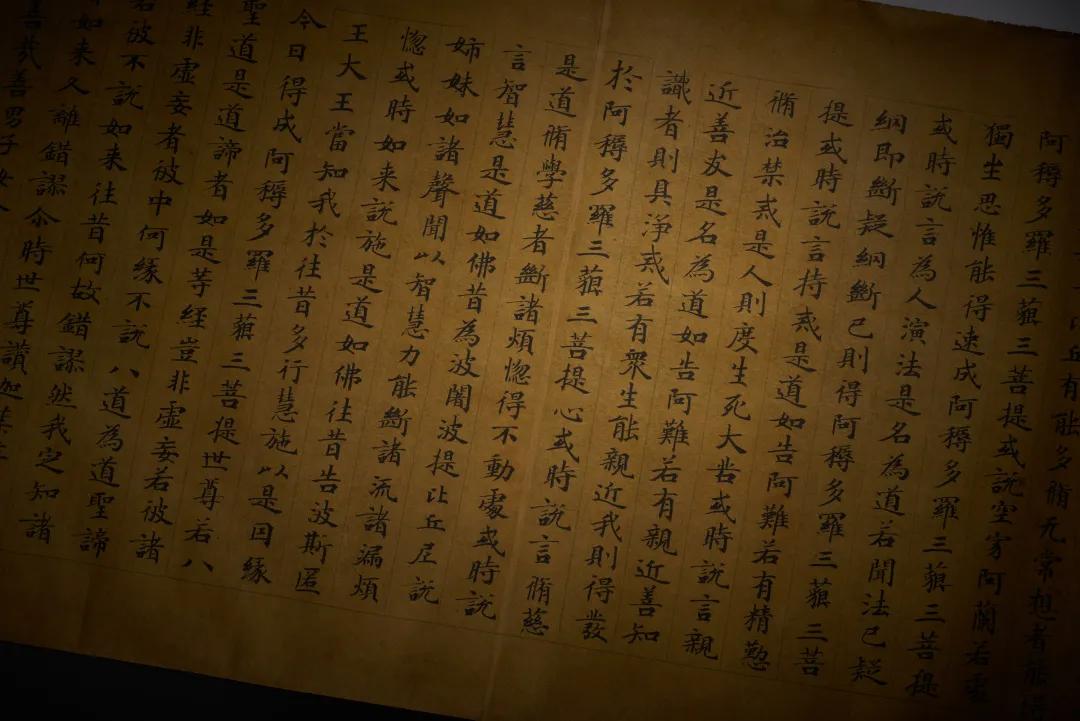 丘有能多脩无常想者能
阿耨多羅三藐三菩提或說空寂阿蘭若處
獨坐思惟能得速成阿耨多羅三藐三菩提
或時說言為人演法是名為道若聞法已疑
網即斷疑網斷已則得阿耨多羅三藐三菩
提或時說言持戒是道如告阿難若有精懃
脩治禁戒是人則度生死大苦或時說言親
近善友是名為道如告阿難若有親近善知
識者則具淨戒若有衆生能親近我則得發
於阿耨多羅三藐三菩提心或時說言脩慈
是道脩學慈者斷諸煩惚得不動處或時說
言智慧是道如佛昔為波闍波提比丘尼說
姉妹如諸聲聞以智慧力能斷諸流諸漏煩
惚或時如来說施是道如佛往昔告波斯匿
王大王當知我於往昔多行慧施以是因緣
今日得成阿耨多羅三藐三菩提世尊若八
聖道是道諦者如是等經豈非虛妄若彼諸
經非虛妄者彼中何緣不說八道為道聖諦
若彼不說如来往昔何故錯謬然我定知諸
如来久離錯謬尒時世尊讚迦葉
善哉善男子汝